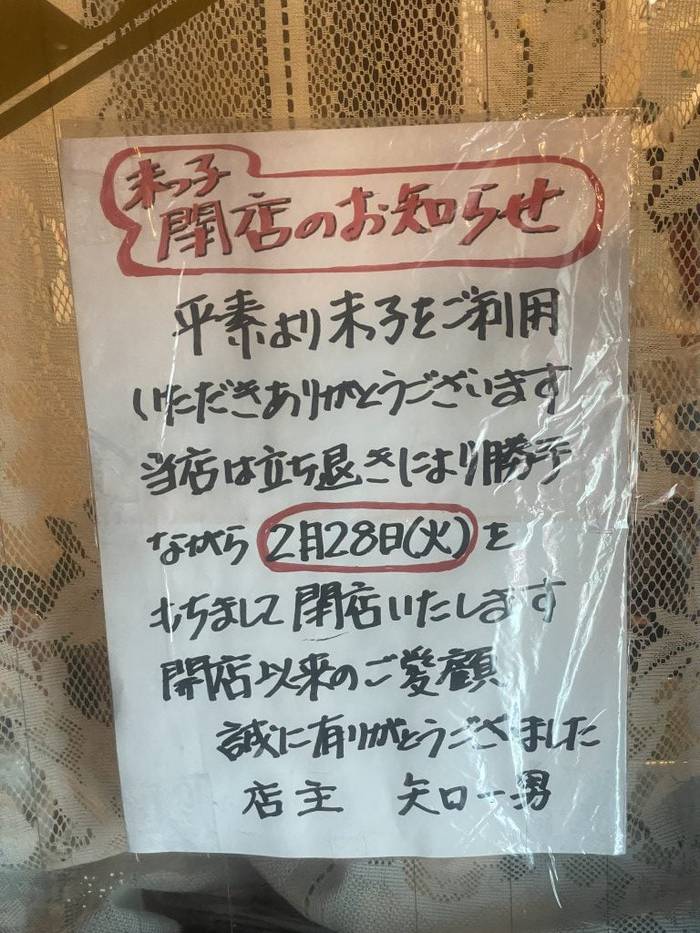 末っ子
閉店のお知らせ
平素より末っ子をご利用
いただきありがとうございます
当店は立ち退きにより勝手
ながら2月28日(火)を
もちまして閉店いたします
開店以来のご愛顧
誠に有りがとうございました
店主 矢口一男